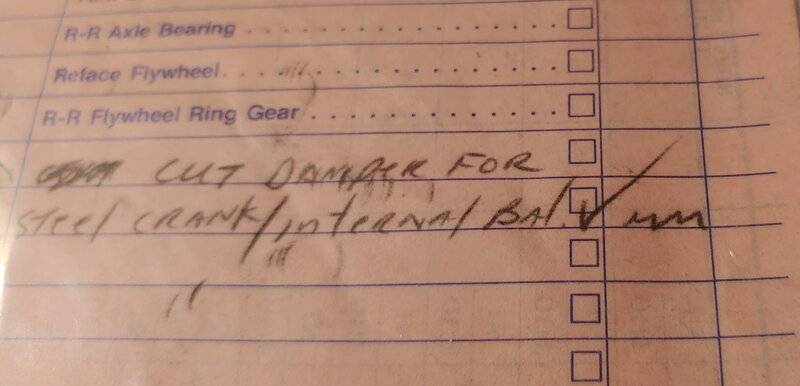 R-R Axle Bearing
Reface Flywheel
R-R Flywheel Ring Gear
CUT DAMPER FOR
Steel CRANK/internal BAL.